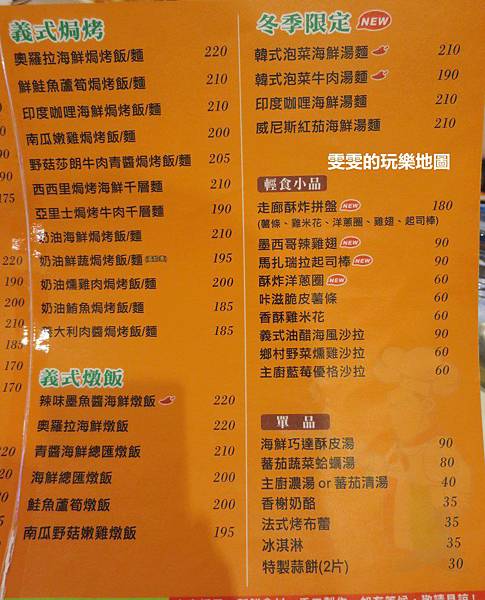 義式焗烤
奧羅拉海鮮焗烤飯/麵 220
鮮鮭魚蘆筍焗烤飯/麵 210
印度咖哩海鮮焗烤飯/麵 210
南瓜嫩雞焗烤飯/麵 200
野菇莎朗牛肉青醬焗烤飯/麵 205
西西里焗烤海鮮千層麵 210
亞里士焗烤牛肉千層麵 190
奶油海鮮焗烤飯/麵 210
奶油鮮蔬焗烤飯/麵 195
奶油燻雞肉焗烤飯/麵 200
奶油鮪魚焗烤飯/麵 185
大利肉醬焗烤飯/麵 185
義式燉飯
辣味墨魚醬海鮮燉飯 220
奧羅拉海鮮燉飯 220
青醬海鮮總匯燉飯 210
海鮮總匯燉飯 200
鮭魚蘆筍燉飯 200
南瓜野菇嫩雞燉飯 195
冬季限定 NEW
韓式泡菜海鮮湯麵 210
韓式泡菜牛肉湯麵 190
印度咖哩海鮮湯麵 210
威尼斯紅茄海鮮湯麵 210
雯雯的玩樂地圖
輕食小品
走廊酥炸拼盤 NEW 180
(薯條、雞米花、洋蔥圈、雞翅、起司棒)
墨西哥辣雞翅 NEW 90
馬扎瑞拉起司棒 NEW 90
酥炸洋蔥圈 NEW 60
咔滋脆皮薯條 60
香酥雞米花 60
義式油醋海風沙拉 90
鄉村野菜燻雞沙拉 60
主廚藍莓優格沙拉 60
單品
海鮮巧達酥皮湯 90
蕃茄蔬菜蛤蠣湯 80
主廚濃湯 or 蕃茄清湯 40
香榭奶酪 35
法式烤布蕾 35
冰淇淋 35
特製蒜餅(2片) 30